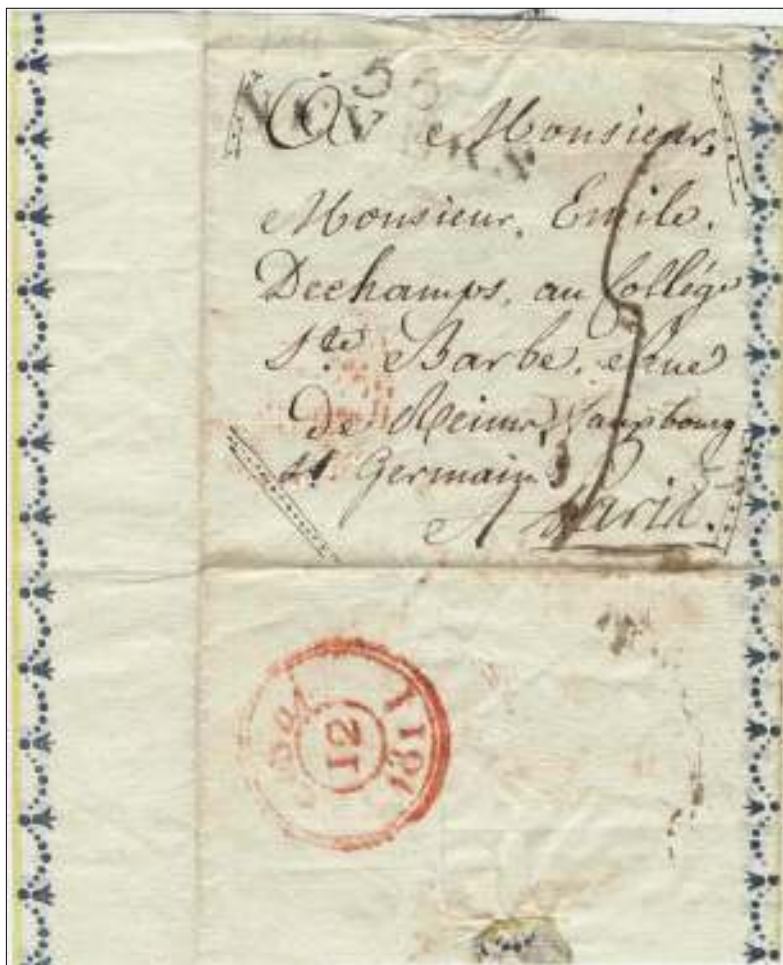 53
A Monsieur,
Monsieur, Emile.
Dechamps, au Collége
Ste Barbe, Rue
de Reims, faux bourg
St Germain
A Paris.
5
12
181